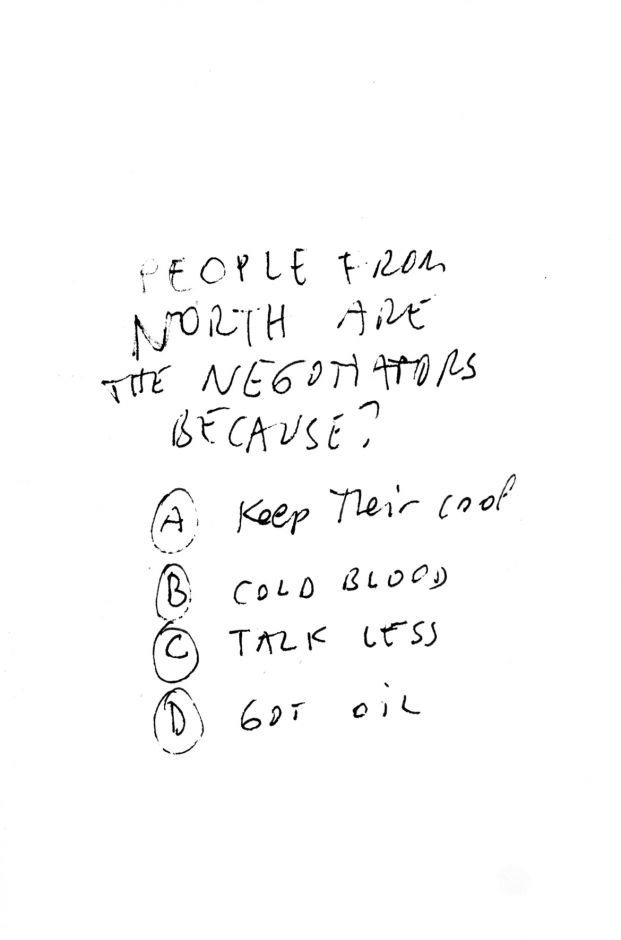 PEOPLE FROM
NORTH ARE
THE NEGOTIATORS
BECAUSE?
A Keep Their cool
B COLD BLOOD
C TALK LESS
D GOT OIL